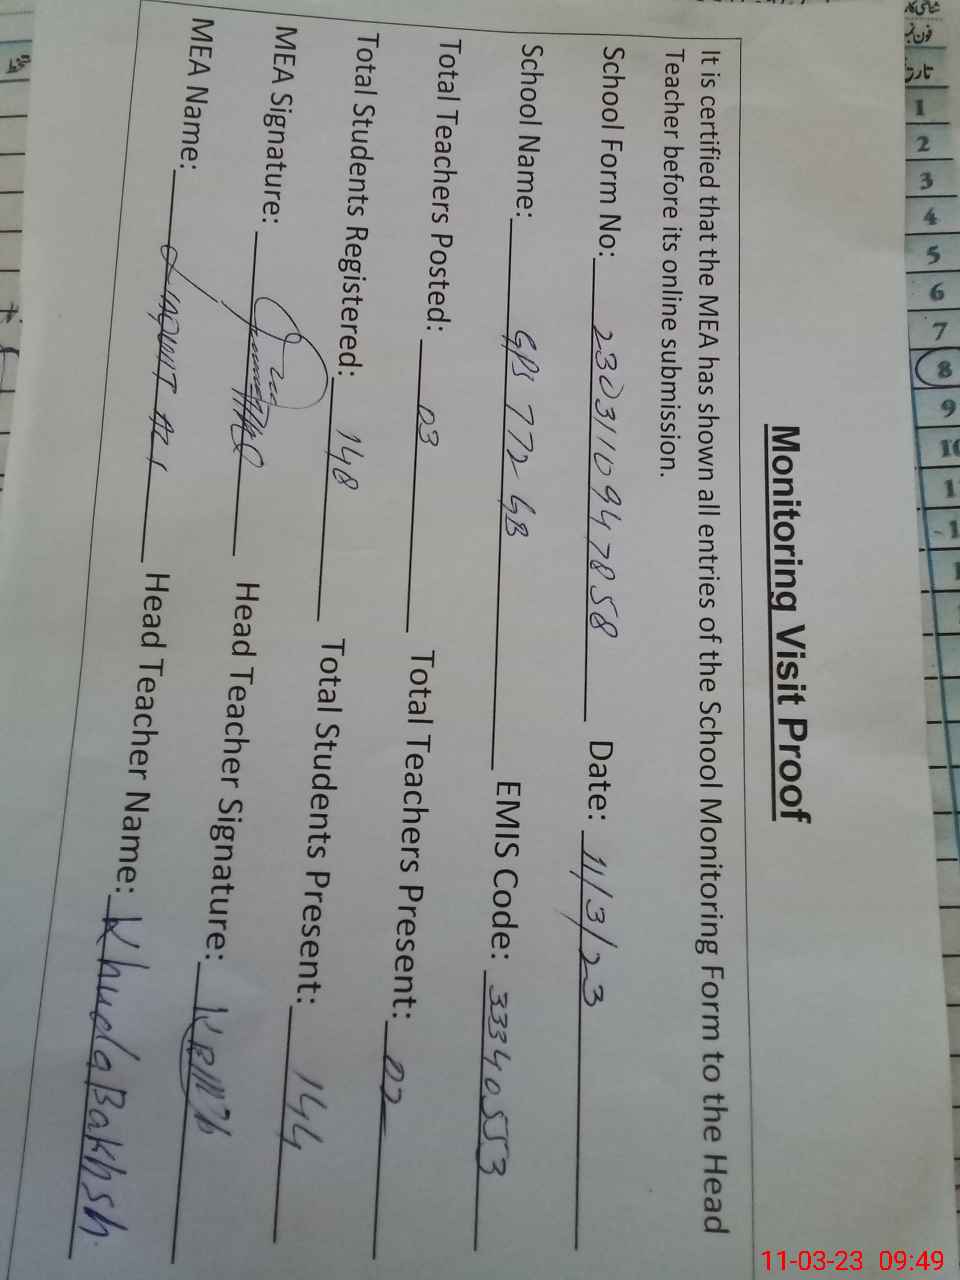 Monitoring Visit Proof
It is certified that the MEA has shown all entries of the School Monitoring Form to the Head
Teacher before its online submission.
School Form No: 2303110947858 Date: 11/3/23
School Name: GPS 772 GB EMIS Code: 33340553
Total Teachers Posted: 03 Total Teachers Present: 02
Total Students Registered: 148 Total Students Present: 144
MEA Signature: Head Teacher Signature:
MEA Name: Head Teacher Name: Khuda Bakhsh.
1
2
3
4
5
6
7
8
9
11-03-23 09:49